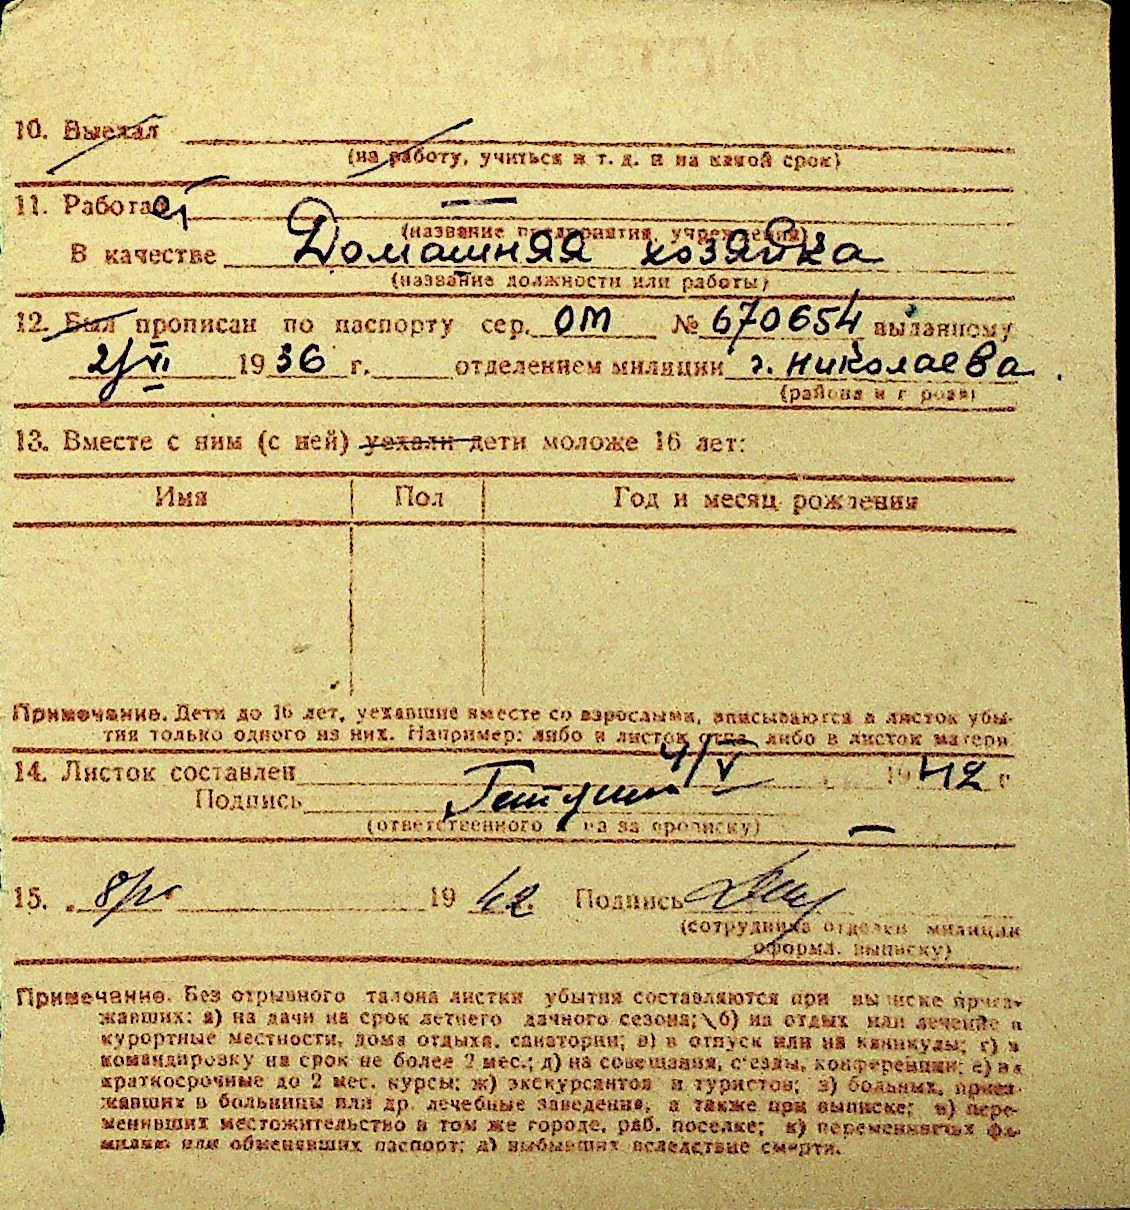 10. Выехал
(на работу, учиться и т. д. и на какой срок)
11. Работает —
(название предприятия, учреждения)
В качестве Домашняя хозяйка
(название должности или работы)
12. Был прописан по паспорту сер. ОМ № 670654 выданному
21/VI 1936 г. отделением милиции г. Николаева.
(района и города)
13. Вместе с ним (с ней) уехали дети моложе 16 лет:
Имя Пол Год и месяц рождения
Примечание. Дети до 16 лет, уехавшие вместе со взрослыми, вписываются в листок убы-
тия только одного из них. Например: либо в листок отца либо в листок матери
14. Листок составлен 4/V 1942 г
Подпись
(ответственного за прописку)
15. 1942. Подпись
(сотрудника отделен. милиции
оформл. выписку)
Примечание. Без отрывного талона листки убытия составляются при выписке приез-
жавших: а) на дачи на срок летнего дачного сезона; б) на отдых или лечение в
курортные местности, дома отдыха, санатории; в) в отпуск или на каникулы; г) в
командировку на срок не более 2 мес.; д) на совещания, съезды, конференции; е) на
краткосрочные до 2 мес. курсы; ж) экскурсантов и туристов; з) больных, приез-
жавших в больницы или др. лечебные заведения, а также при выписке; и) пере-
менивших местожительство в том же городе, раб. поселке; к) переменивших фа-
милию или обменявших паспорт; л) выбывших вследствие смерти.